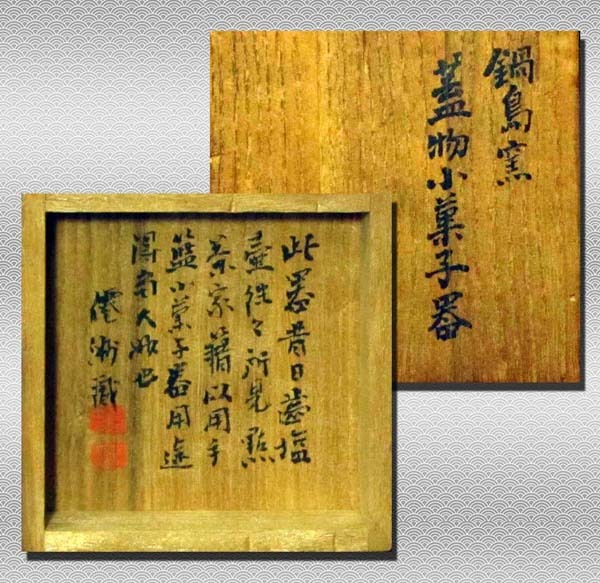 鍋島窯
蓋物小菓子器
此器昔日歯塩
壺往々所見点
茶家籍以用手
籃小菓子器用途
得当大妙也
僊洲識